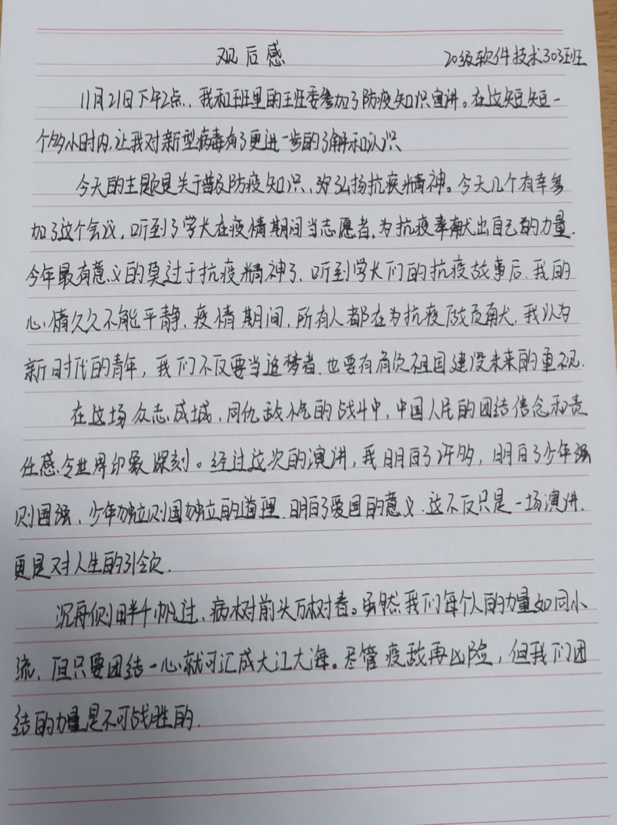 观后感 20级软件技术303班
11月21日下午2点,我和班里的班委参加了防疫知识宣讲。在这短短一
个多小时内,让我对新型病毒有了更进一步的了解和认识
今天的主题是关于普及防疫知识、弘扬抗疫精神。今天几个有幸参
加了这个会议,听到了学长在疫情期间当志愿者,为抗疫奉献出自己的力量.
今年最有意义的莫过于抗疫精神了,听到学长们的抗疫故事后,我的
心情久久不能平静,疫情期间,所有人都在为抗疫做贡献,我认为
新时代的青年,我们不仅要当追梦者,也要有肩负祖国建设未来的重视.
在这场众志成城,同仇敌忾的战斗中,中国人民的团结信念和责
任感,令世界印象深刻。经过这次的演讲,我明白了许多,明白了少年强
则国强、少年独立则国独立的道理,明白了爱国的意义.这不仅只是一场演讲.
更是对人生的引领.
沉舟侧畔千帆过,病树前头万树春。虽然我们每个人的力量如同小
流,但只要团结一心就可汇成大江大海。尽管疫敌再凶险,但我们团
结的力量是不可战胜的.